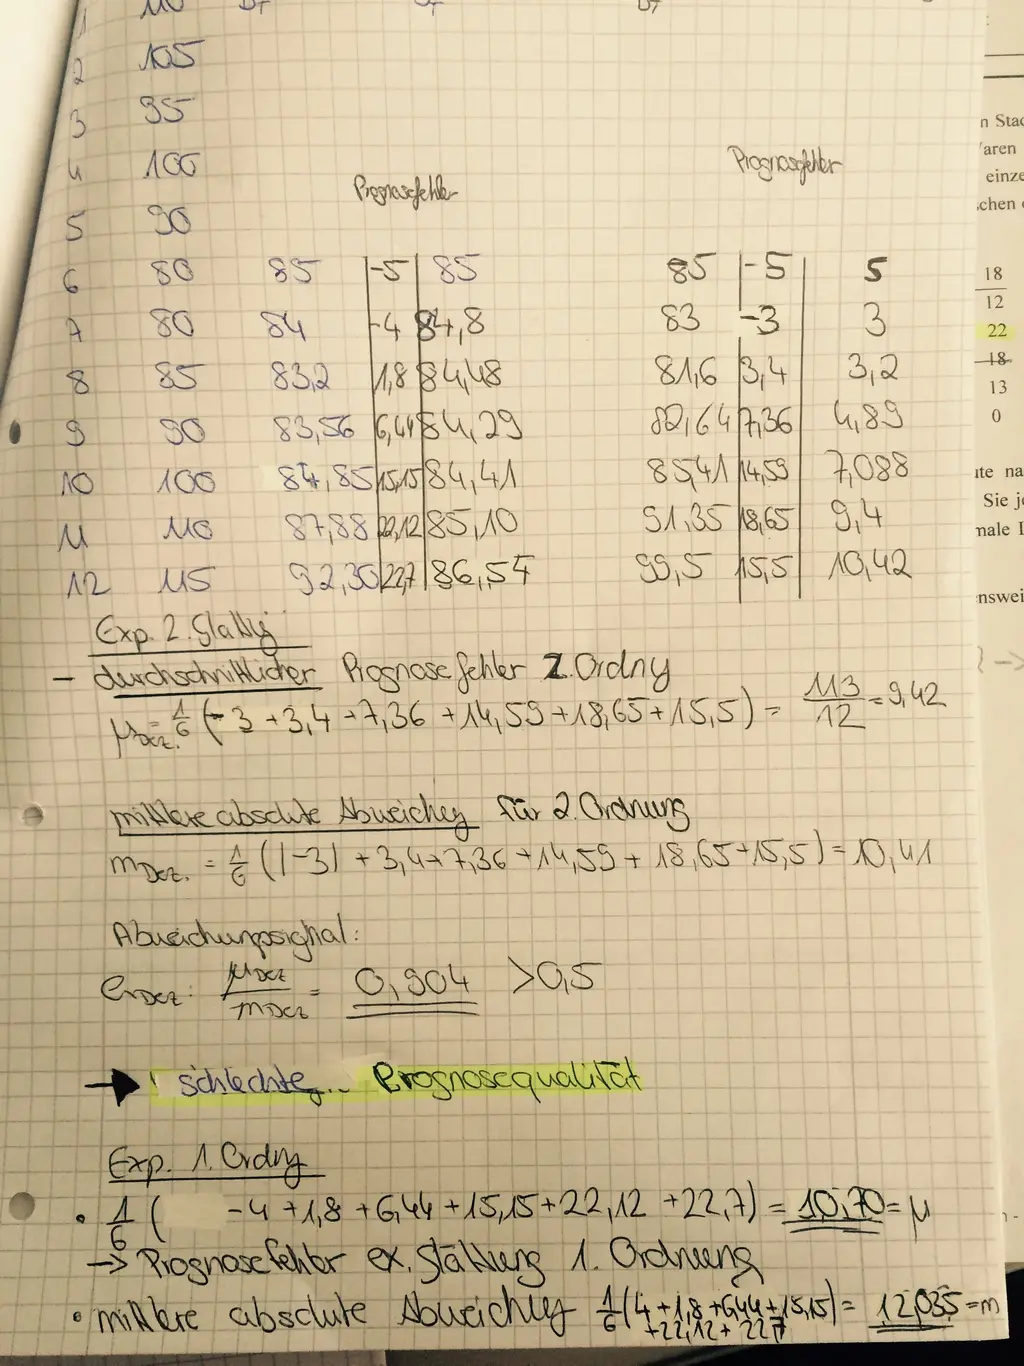 1 110 DT DT DT
2 105
3 95
4 100
Prognosefehler Prognosefehler
5 90
6 80 85 -5 85 85 -5 5
7 80 84 -4 84,8 83 -3 3
8 85 83,2 1,8 84,48 81,6 3,4 3,2
9 90 83,56 6,44 84,29 82,64 7,36 4,89
10 100 84,85 15,15 84,41 85,41 14,59 7,088
11 110 87,88 22,12 85,10 91,35 18,65 9,4
12 115 92,30 22,7 86,54 99,5 15,5 10,42
Exp. 2. Glattg
- durchschnittlicher Prognosefehler 2. Ordng
μDez. = 1/6 (-3 + 3,4 + 7,36 + 14,59 + 18,65 + 15,5) = 113/12 = 9,42
mittlere absolute Abweichg für 2. Ordnung
mDez. = 1/6 (|-3| + 3,4 + 7,36 + 14,59 + 18,65 + 15,5) = 10,41
Abweichungssignal:
eDez: μDez/mDez = 0,904 > 0,5
→ schlechte Prognosequalität
Exp. 1. Ordng
• 1/6 ( -4 + 1,8 + 6,44 + 15,15 + 22,12 + 22,7) = 10,70 = μ
-> Prognosefehler ex. Glättung 1. Ordnung
• mittlere absolute Abweichg 1/6 (4 + 1,8 + 6,44 + 15,15) = 12,035 = m
+22,12 + 22,7
n Stad
aren
einze
chen
18
12
22
18
13
0
ute na
Sie je
male
ensweis